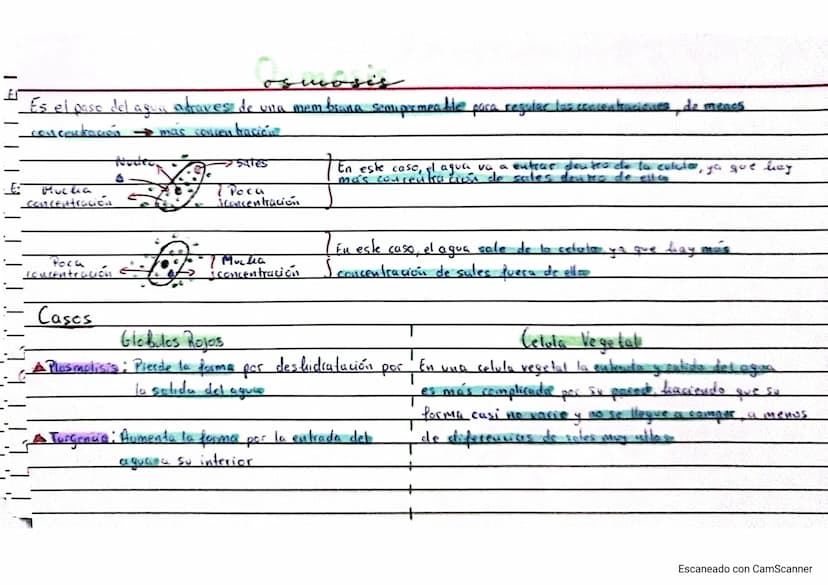 Osmosis
Es el paso del agua atraves de una membrana semipermeable para regular las concentraciones, de menos
concentración → más concentración
Núcleo
Sales
Mucha
concentración
Poca
concentración
En este caso, el agua va a entrar dentro de la celula, ya que hay
más concentración de sales dentro de ella
Poca
concentración
Mucha
concentración
En este caso, el agua sale de la celula ya que hay más
concentración de sales fuera de ella
Casos
Globulos Rojos
Plasmolisis: Pierde la forma por deshidratación por
la salida del agua
Turgencia: Aumenta la forma por la entrada del
agua a su interior
Celula Vegetal
En una celula vegetal la entrada y salida del agua
es más complicada por su pared, haciendo que su
forma casi no varie y no se llegue a romper, a menos
de diferencias de sales muy altas
Escaneado con CamScanner